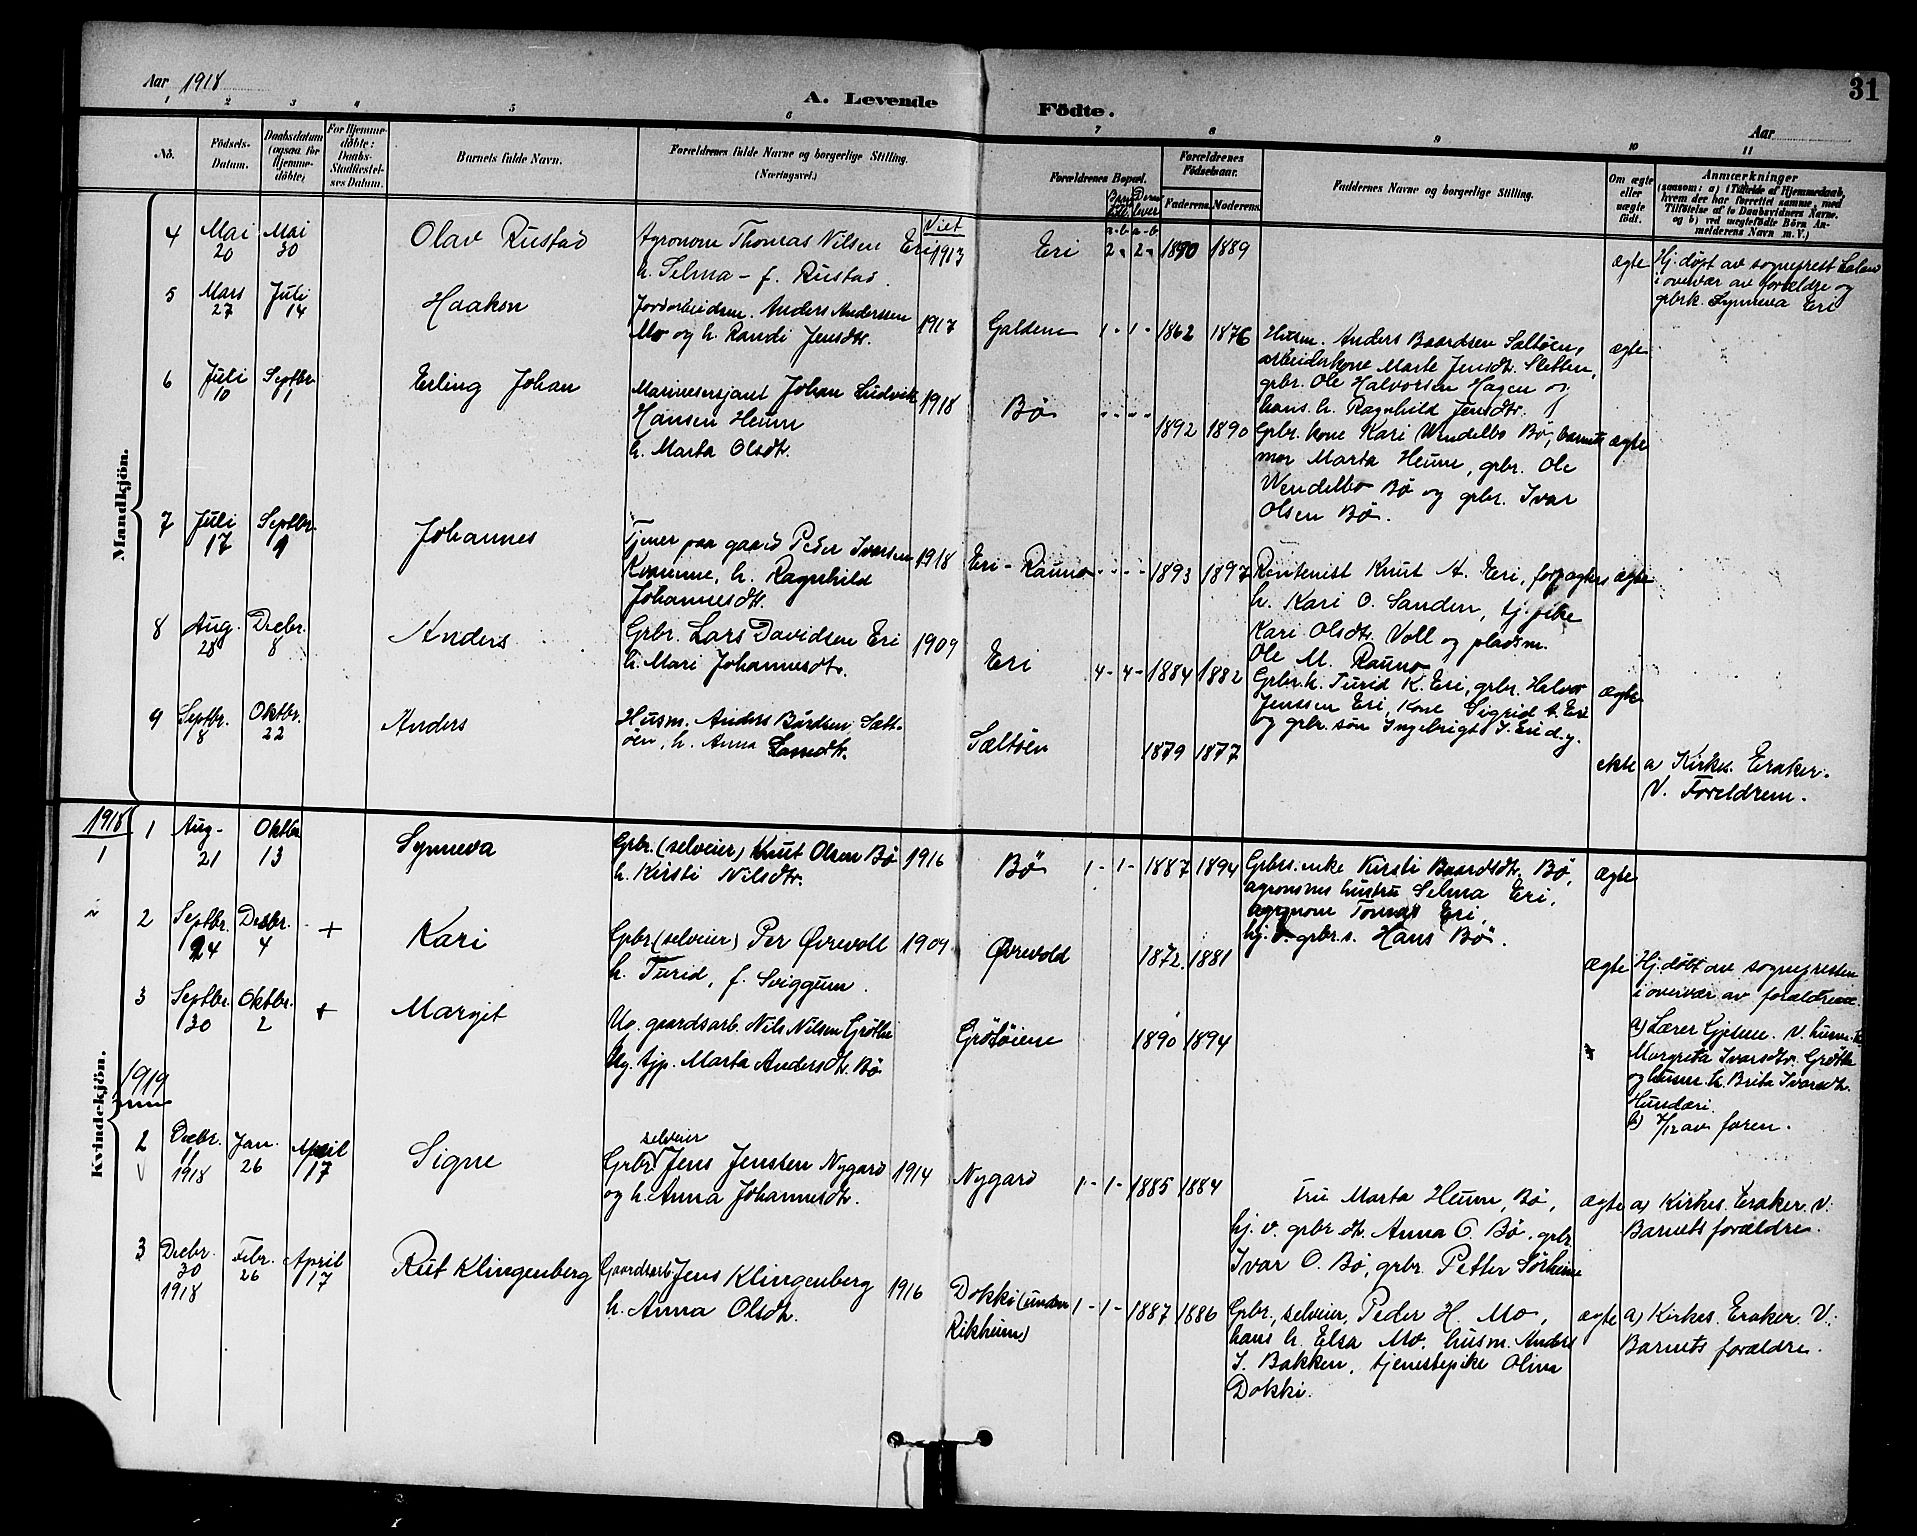 Aar 1918
A. Levende
Födte.
Aar
31
1 2 3 4 5 6 7 8 9 10 11
No.
Födsels-
Datum.
Daabsdatum
(ogsaa for
Hjemme-
döbte)
For Hjemme-
döbte:
Daabs-
Stadfæstel-
ses Datum.
Barnets fulde Navn.
Forældrenes fulde Navne og borgerlige Stilling.
(Næringsvei.)
Viet
Forældrenes Bopæl.
Forældrenes
Födselsaar.
Faderens. Moderens.
Faddernes Navne og borgerlige Stilling.
Om ægte
eller
uægte
født.
Anmærkninger
(saasom: a) i Tilfælde af Hjemmedaab,
hvem der har forrettet samme, med
Tilføielse af to Daabsvidners Navne.
og b) ved uægtefödte Börn An-
melderens Navn m. V.)
a-b a-b
Mandkjön.
4
Mai
20
Mai
30
Olav Rustad
Agronom Thomas Nilsen Eri
h. Selma - f. Rustad.
1913
Eri
2 - 2 -
1890 1889
ægte
Hj. døpt av sogneprest
i overvær av forældre og
grbrk. Synneva Eri
5
Mars
27
Juli
14
Haakon
Jordarbeidsm. Anders Anderssen
Mo og h. Randi Jensdtr.
1917
Galdene
1 - 1 -
1862 1876
Husm. Anders Baardsen Sæltøen,
arbeiderkone Marte Jensdtr. Sletten,
grbr. Ole Halvorsen Hagen og
hans h. Ragnhild Jensdtr.
ægte
6
Juli
10
Septbr.
1
Erling Johan
Marinesersjant Johan Ludvik
Hansen Heum
h. Marta Olsdtr.
1918
Bø
1892 1890
Grbr. kone Kari Wendelbo Bø, barnets
mor Marta Heum, grbr. Ole
Wendelbo Bø og grbr. Ivar
Olsen Bø.
ægte
7
Juli
17
Septbr.
1
Johannes
Tjener paa gaard Peder Ivarsen
Kvamme, h. Ragnhild
Johannesdtr.
1918
Eri - Rauno
1893 1897
Rentenist Knut A. Eri, forpagters
h. Kari O. Sanden, tj. pike
Kari Olsdtr. Voll og pladsm.
Ole M. Rauno
ægte
8
Aug.
28
Decbr.
8
Anders
Grbr. Lars Davidsen Eri
h. Mari Johannesdtr.
1909
Eri
4 - 4 -
1884 1882
Grbr. h. Turid K. Eri, grbr. Halvor
Jenssen Eri, kone Sigrid A. Eri
og grbr. søn Ingebrigt J. Eri d.y.
ægte
9
Septbr.
8
Oktbr.
22
Anders
Husm. Anders Bårdsen Sælt-
øen, h. Anna
Sæltøen
1879 1877
ekte
a Kirkes. Eraker.
V. Foreldrem.
Kvindekjön.
1918
1
1
Aug.
21
Oktbr.
13
Synneva
Grbr. (selveier) Knut Olsen Bø
h. Kirsti Nilsdtr.
1916
Bø
1 - 1 -
1887 1894
Grbrs. enke Kirsti Baardsdtr. Bø,
agronomes hustru Selma Eri,
agronom Tomas Eri,
hj. v. grbr. s. Hans Bø.
ægte
2
Septbr.
24
Decbr.
4
+
Kari
Grbr (selveier) Per Øvrevoll
h. Turid, f. Sviggum.
1909
Øvrevold
1872. 1881
ægte
Hj. døbt av sognepresten
i overvær av forældrene.
3
Septbr.
30
Oktbr.
2
+
Margit
Ug. gaardsarb. Nils Nilsen Grøttø
Ug. tjp. Marta Andersdtr. Bø
Grøtøiene
1890 1894
a) Lærer Gjelme. V. husm.
Margreta Ivarsdtr. Grøttø
og husm. h. Brita Ivarsdtr.
b) av faren.
1919
2
Decbr.
11
1918
Jan.
26
April
17
Signe
selveier
Grbr. Jens Jensten Nygard
og h. Anna Johannesdtr.
1914
Nygard
1 - 1 -
1885 1884
Fru Marta Heum, Bø,
hj. v. grbr dtr. Anna O. Bø, grbr
Ivar O. Bø, grbr. Petter Sørheim
ægte
a) Kirkes. Eraker. V:
Barnets forældre.
3
Decbr.
30
1918
Febr.
26
April
17
Rut Klingenberg
Gaardsarb. Jens Klingenberg
h. Anna Olsdtr.
1916
Dokki (under
Rikheim)
1 - 1 -
1887 1886
Grbr., selveier, Peder H. Mo,
hans h. Elsa Mo, husm. Anders
J. Bakken, tjenestepike Olina
Dokki.
ægte
a) Kirkes. Eraker. V:
Barnets forældre.